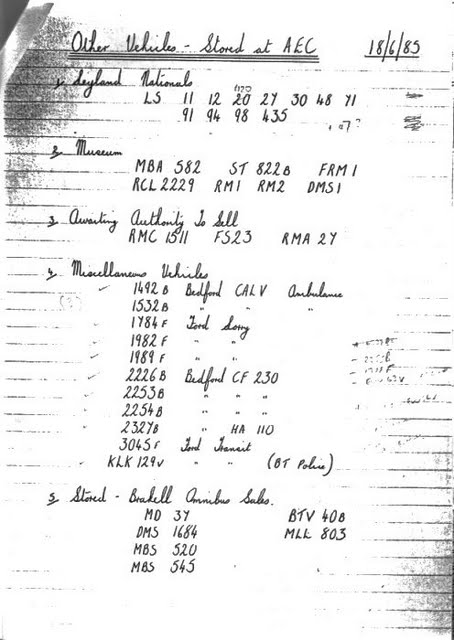 Other Vehicles - Stored at AEC 18/6/85
1, Leyland Nationals
LS 11 12 20 27 30 48 71
91 94 98 435
2, Museum
MBA 582 ST 822B FRM 1
RCL 2229 RM1 RM2 DMS1
3, Awaiting Authority To Sell
RMC 1511 FS23 RMA 27
4, Miscellaneous Vehicles
1492B Bedford CALV Ambulance
1532B " " "
1784F Ford Lorry
1982F " "
1989F " "
2226B Bedford CF 230
2253B " " "
2254B " " "
2327B " HA 110
3045F Ford Transit
KLK 129V " " (BT Police)
5, Stored - Brakell Omnibus Sales.
MD 37 BTV 40B
DMS 1684 MLL 803
MBS 520
MBS 545